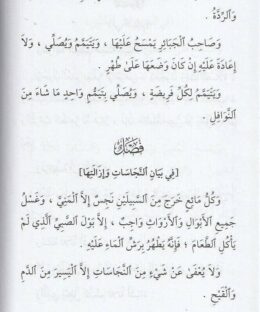 وَالرِّدَّةُ .
وَصَاحِبُ الْجَبَائِرِ يَمْسَحُ عَلَيْهَا ، وَيَتَيَمَّمُ وَيُصَلِّي ، وَلَا
إِعَادَةَ عَلَيْهِ إِنْ كَانَ وَضَعَهَا عَلَىٰ طُهْرٍ .
وَيَتَيَمَّمُ لِكُلِّ فَرِيضَةٍ ، وَيُصَلِّي بِتَيَمُّمٍ وَاحِدٍ مَا شَاءَ مِنَ
النَّوَافِلِ .
فَصْلٌ
[فِي بَيَانِ النَّجَاسَاتِ وَإِزَالَتِهَا]
وَكُلُّ مَائِعٍ خَرَجَ مِنَ السَّبِيلَيْنِ نَجِسٌ إِلَّا الْمَنِيَّ ، وَغَسْلُ
جَمِيعِ الْأَبْوَالِ وَالْأَرْوَاثِ وَاجِبٌ ، إِلَّا بَوْلَ الصَّبِيِّ الَّذِي لَمْ
يَأْكُلِ الطَّعَامَ ؛ فَإِنَّهُ يَطْهُرُ بِرَشِّ الْمَاءِ عَلَيْهِ .
وَلَا يُعْفَىٰ عَنْ شَيْءٍ مِنَ النَّجَاسَاتِ إِلَّا الْيَسِيرَ مِنَ الدَّمِ
وَالْقَيْحِ .